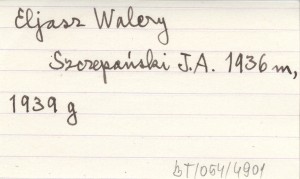 Eljasz Walery
Szczepański J.A. 1936 m,
1939 g
DT/054/4901